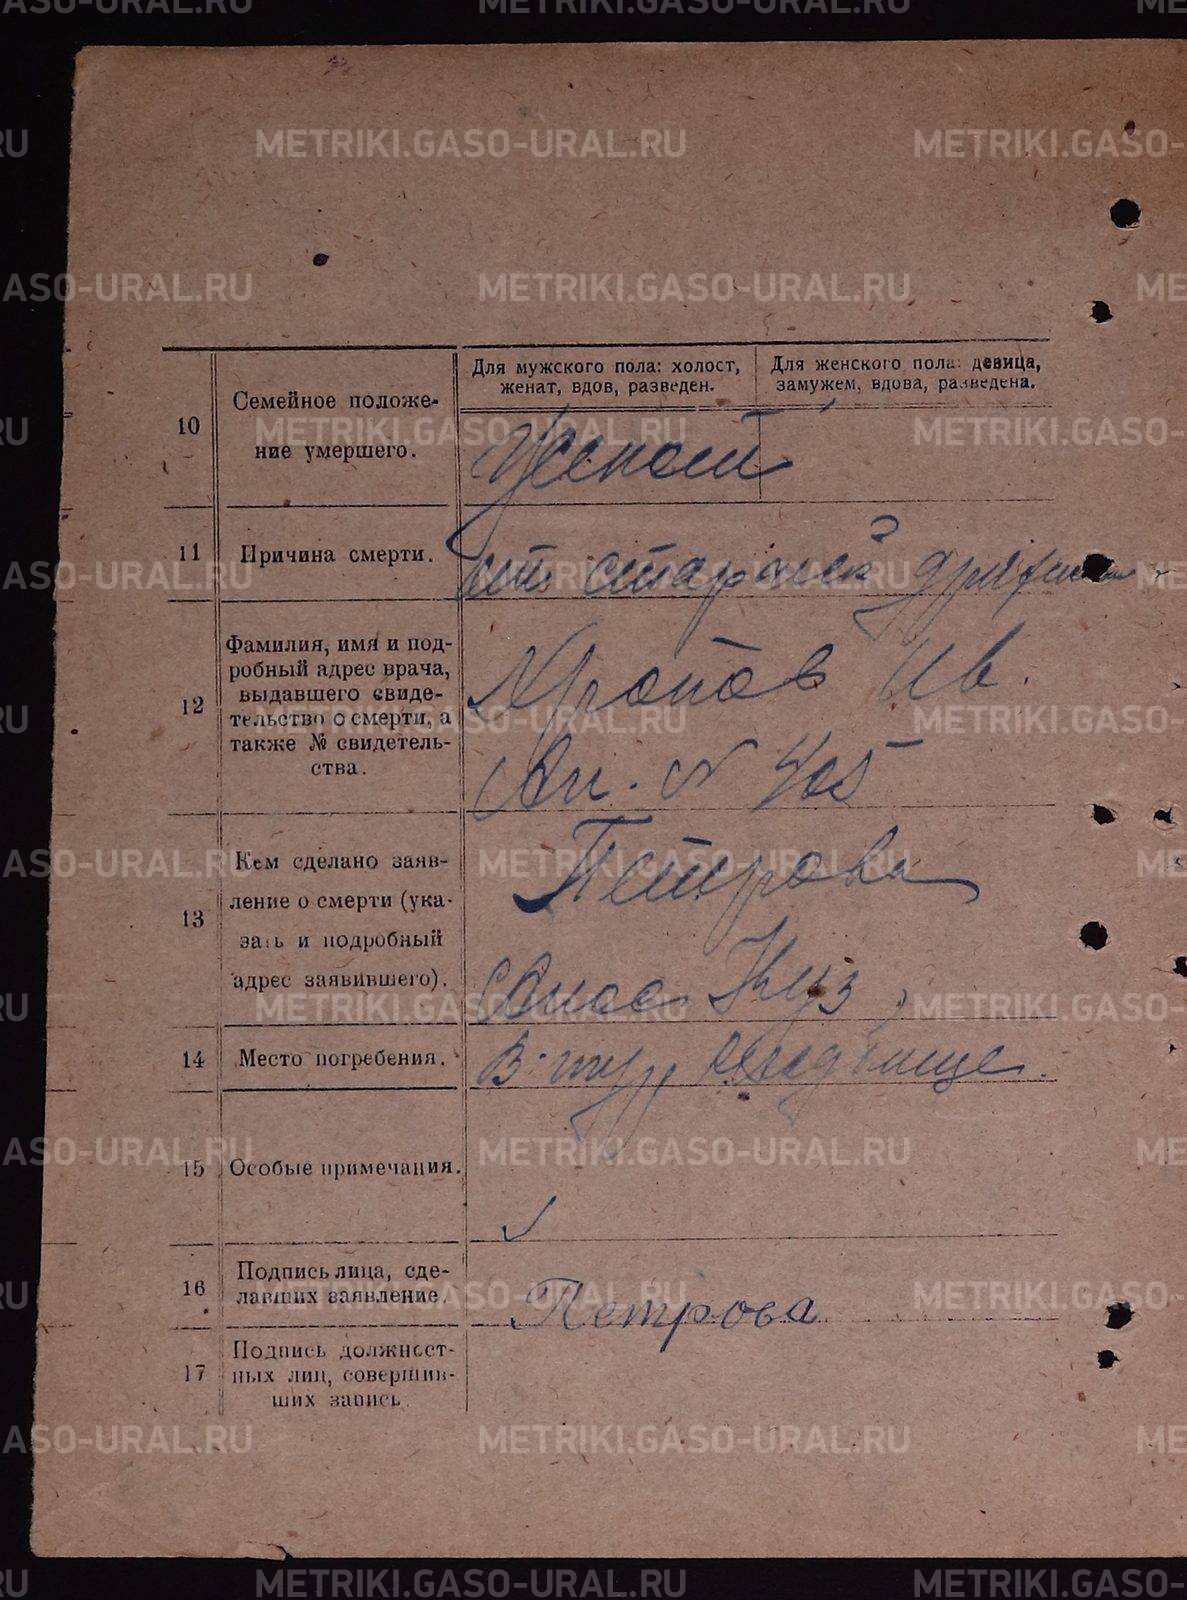 Для мужского пола: холост,
женат, вдов, разведен.
Для женского пола: девица,
замужем, вдова, разведена.
10
Семейное положе-
ние умершего.
Женат
11
Причина смерти.
от старческ дряхлости
12
Фамилия, имя и под-
робный адрес врача,
выдавшего свиде-
тельство о смерти, а
также № свидетель-
ства.
Ив.
N 405
13
Кем сделано заяв-
ление о смерти (ука-
зать и подробный
адрес заявившего).
Петрова
Анас Куз
14
Место погребения.
кладбище.
15
Особые примечания.
16
Подпись лица, сде-
лавших заявление.
Петрова
17
Подпись должност-
ных лиц, совершив-
ших запись
METRIKI.GASO-URAL.RU